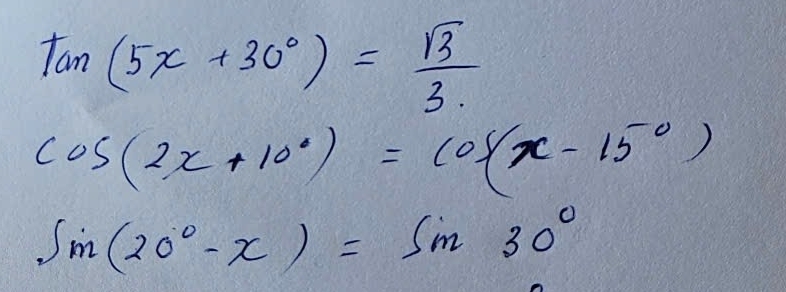 Tan (5x + 30°) = √3/3.
cos(2x + 10°) = cos(x - 15°)
Sin(20° - x) = Sin 30°